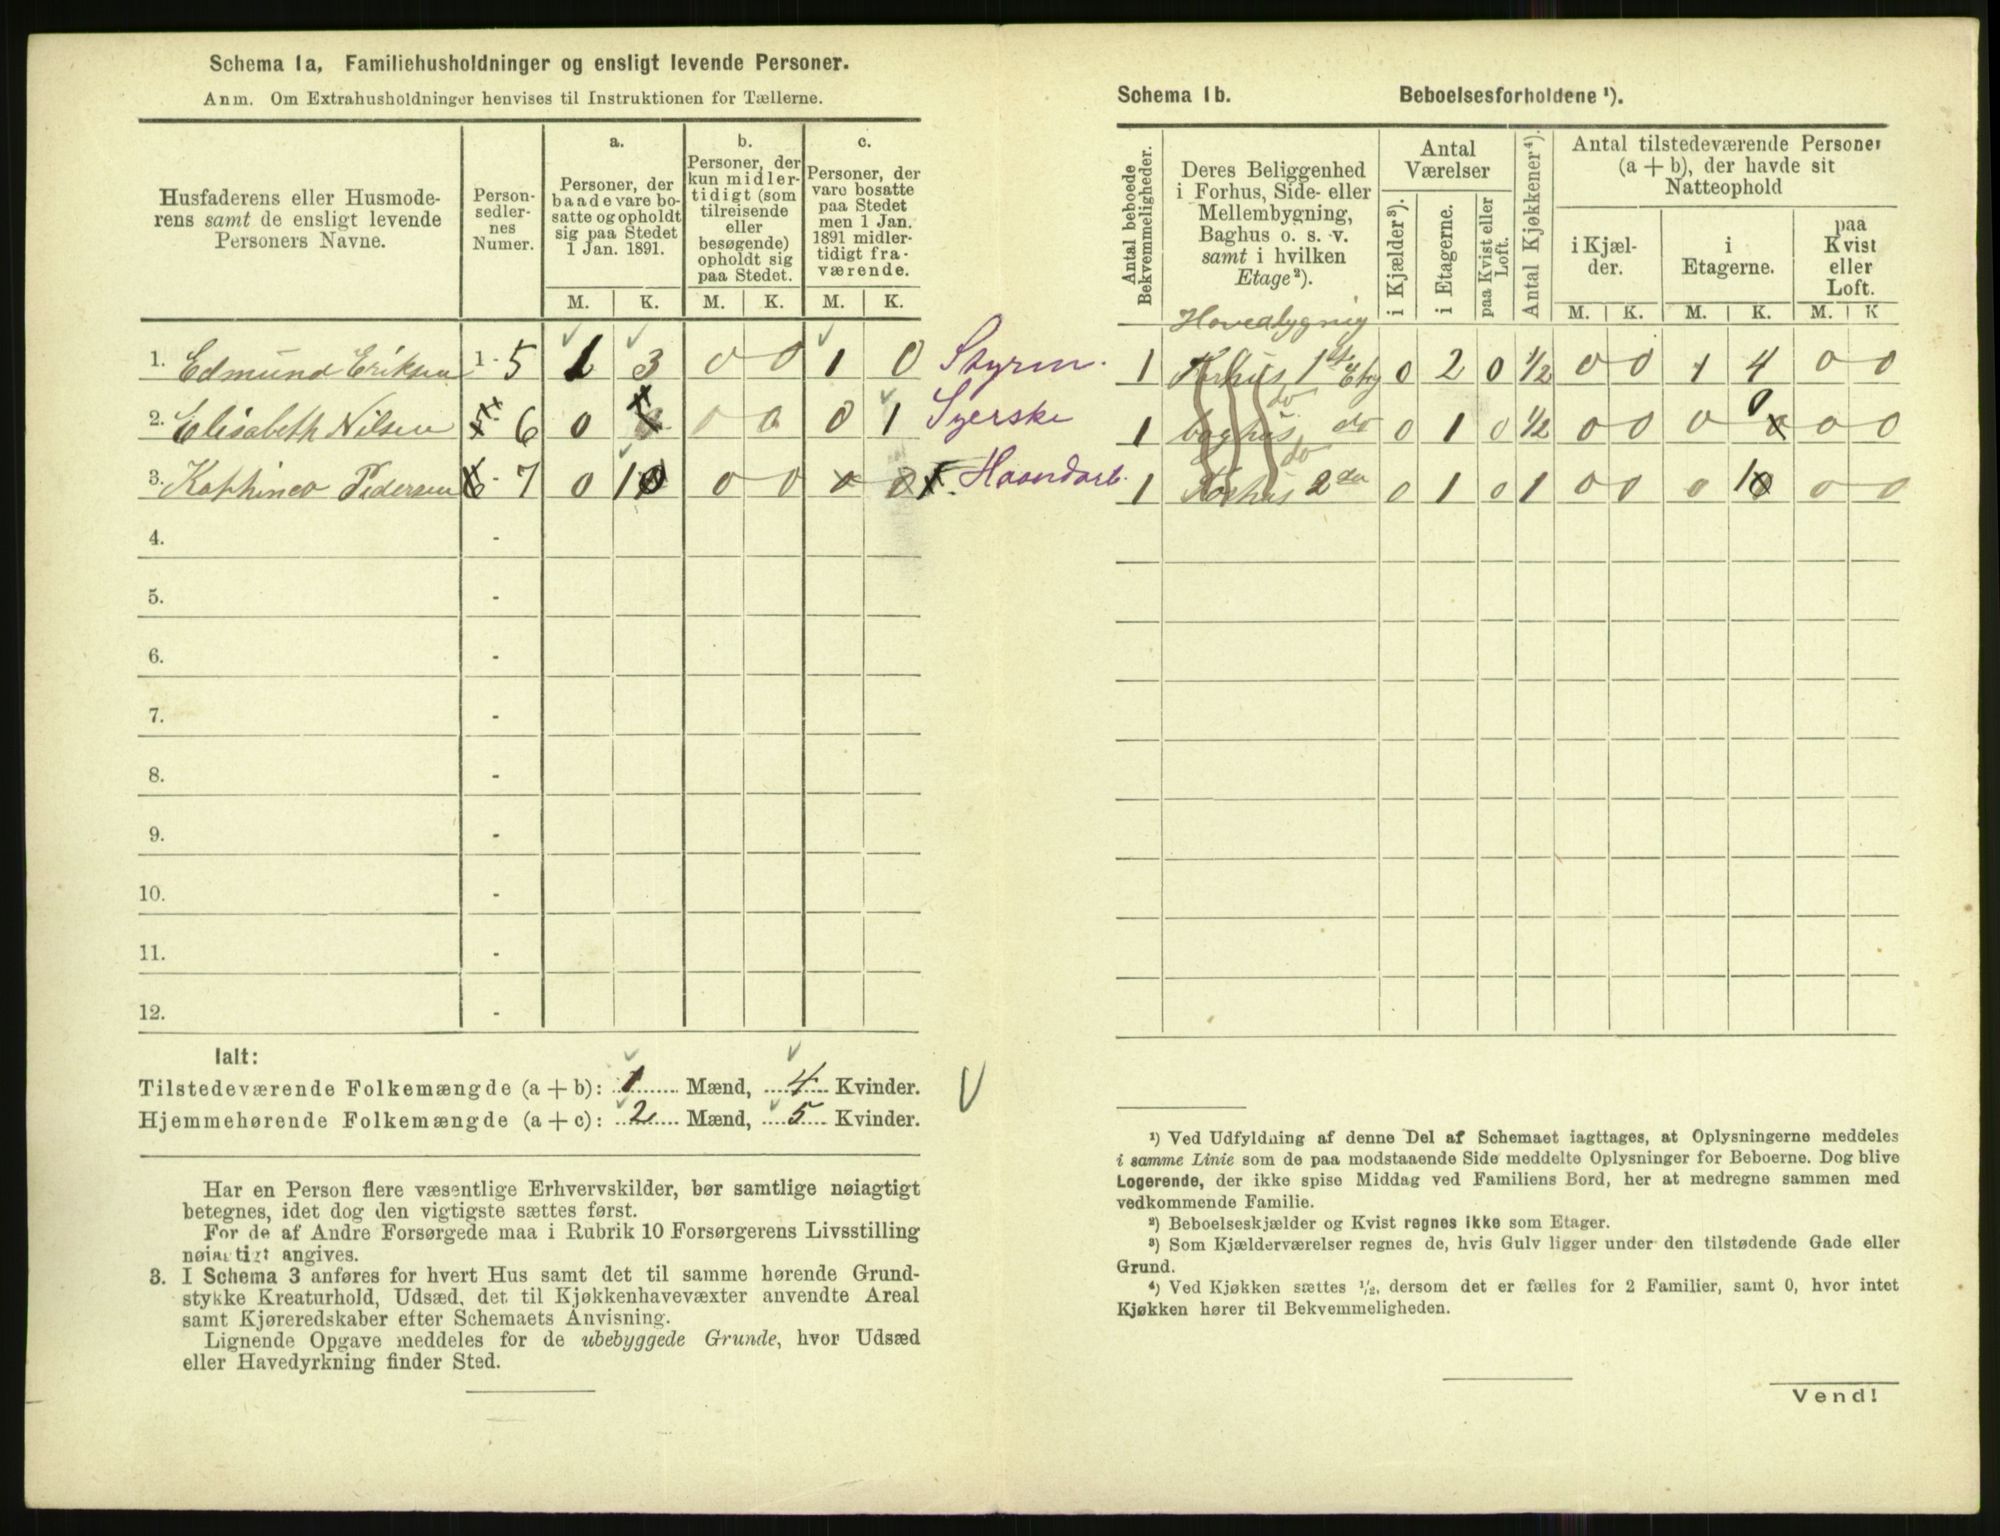 Schema 1a, Familiehusholdninger og ensligt levende Personer.
Anm. Om Extrahusholdninger henvises til Instruktionen for Tællerne.
Husfaderens eller Husmode-
rens samt de ensligt levende
Personers Navne.
Person-
sedler-
nes
Numer.
a.
Personer, der
baade vare bo-
satte og opholdt
sig paa Stedet
1 Jan. 1891.
b.
Personer, der
kun midler-
tidigt (som
tilreisende
eller
besøgende)
opholdt sig
paa Stedet.
c.
Personer, der
vare bosatte
paa Stedet
men 1 Jan.
1891 midler-
tidigt fra-
værende.
M. K. M. K. M. K.
1. Edmund Eriksen 1 - 5 1 3 0 0 1 0 Styrm.
2. Elisabeth Nilsen 6 0 0 0 0 1 Syerske
3. Pedersen - 7 0 1 0 0 0 Haandarb.
4. -
5. -
6. -
7. -
8. -
9. -
10. -
11. -
12. -
Ialt:
Tilstedeværende Folkemængde (a + b): 1 Mænd, 4 Kvinder.
Hjemmehørende Folkemængde (a + c): 2 Mænd, 5 Kvinder.
Har en Person flere væsentlige Erhvervskilder, bør samtlige nøiagtigt
betegnes, idet dog den vigtigste sættes først.
For de af Andre Forsørgede maa i Rubrik 10 Forsørgerens Livsstilling
nøiagtigt angives.
3. I Schema 3 anføres for hvert Hus samt det til samme hørende Grund-
stykke Kreaturhold, Udsæd, det til Kjøkkenhavevæxter anvendte Areal
samt Kjøreredskaber efter Schemaets Anvisning.
Lignende Opgave meddeles for de ubebyggede Grunde, hvor Udsæd
eller Havedyrkning finder Sted.
Schema 1b. Beboelsesforholdene ¹).
Antal beboede
Bekvemmeligheder.
Deres Beliggenhed
i Forhus, Side- eller
Mellembygning,
Baghus o. s. v.
samt i hvilken
Etage²).
Antal
Værelser
i Kjælder³).
i Etagerne.
paa Kvist eller
Loft.
Antal Kjøkkener⁴).
Antal tilstedeværende Personer
(a + b), der havde sit
Natteophold
i Kjæl-
der.
i
Etagerne.
paa
Kvist
eller
Loft.
M. K. M. K. M. K
Hovedbygnig
1 Forhus, 1ste Etg 0 2 0 1/2 0 0 1 4 0 0
do
1 baghus, do 0 1 0 1/2 0 0 0 0 0 0
do
1 Forhus 2den 0 1 0 1 0 0 0 1 0 0
¹) Ved Udfyldning af denne Del af Schemaet iagttages, at Oplysningerne meddeles
i samme Linie som de paa modstaaende Side meddelte Oplysninger for Beboerne. Dog blive
Logerende, der ikke spise Middag ved Familiens Bord, her at medregne sammen med
vedkommende Familie.
²) Beboelseskjælder og Kvist regnes ikke som Etager.
³) Som Kjælderværelser regnes de, hvis Gulv ligger under den tilstødende Gade eller
Grund.
⁴) Ved Kjøkken sættes ½, dersom det er fælles for 2 Familier, samt 0, hvor intet
Kjøkken hører til Bekvemmeligheden.
Vend!